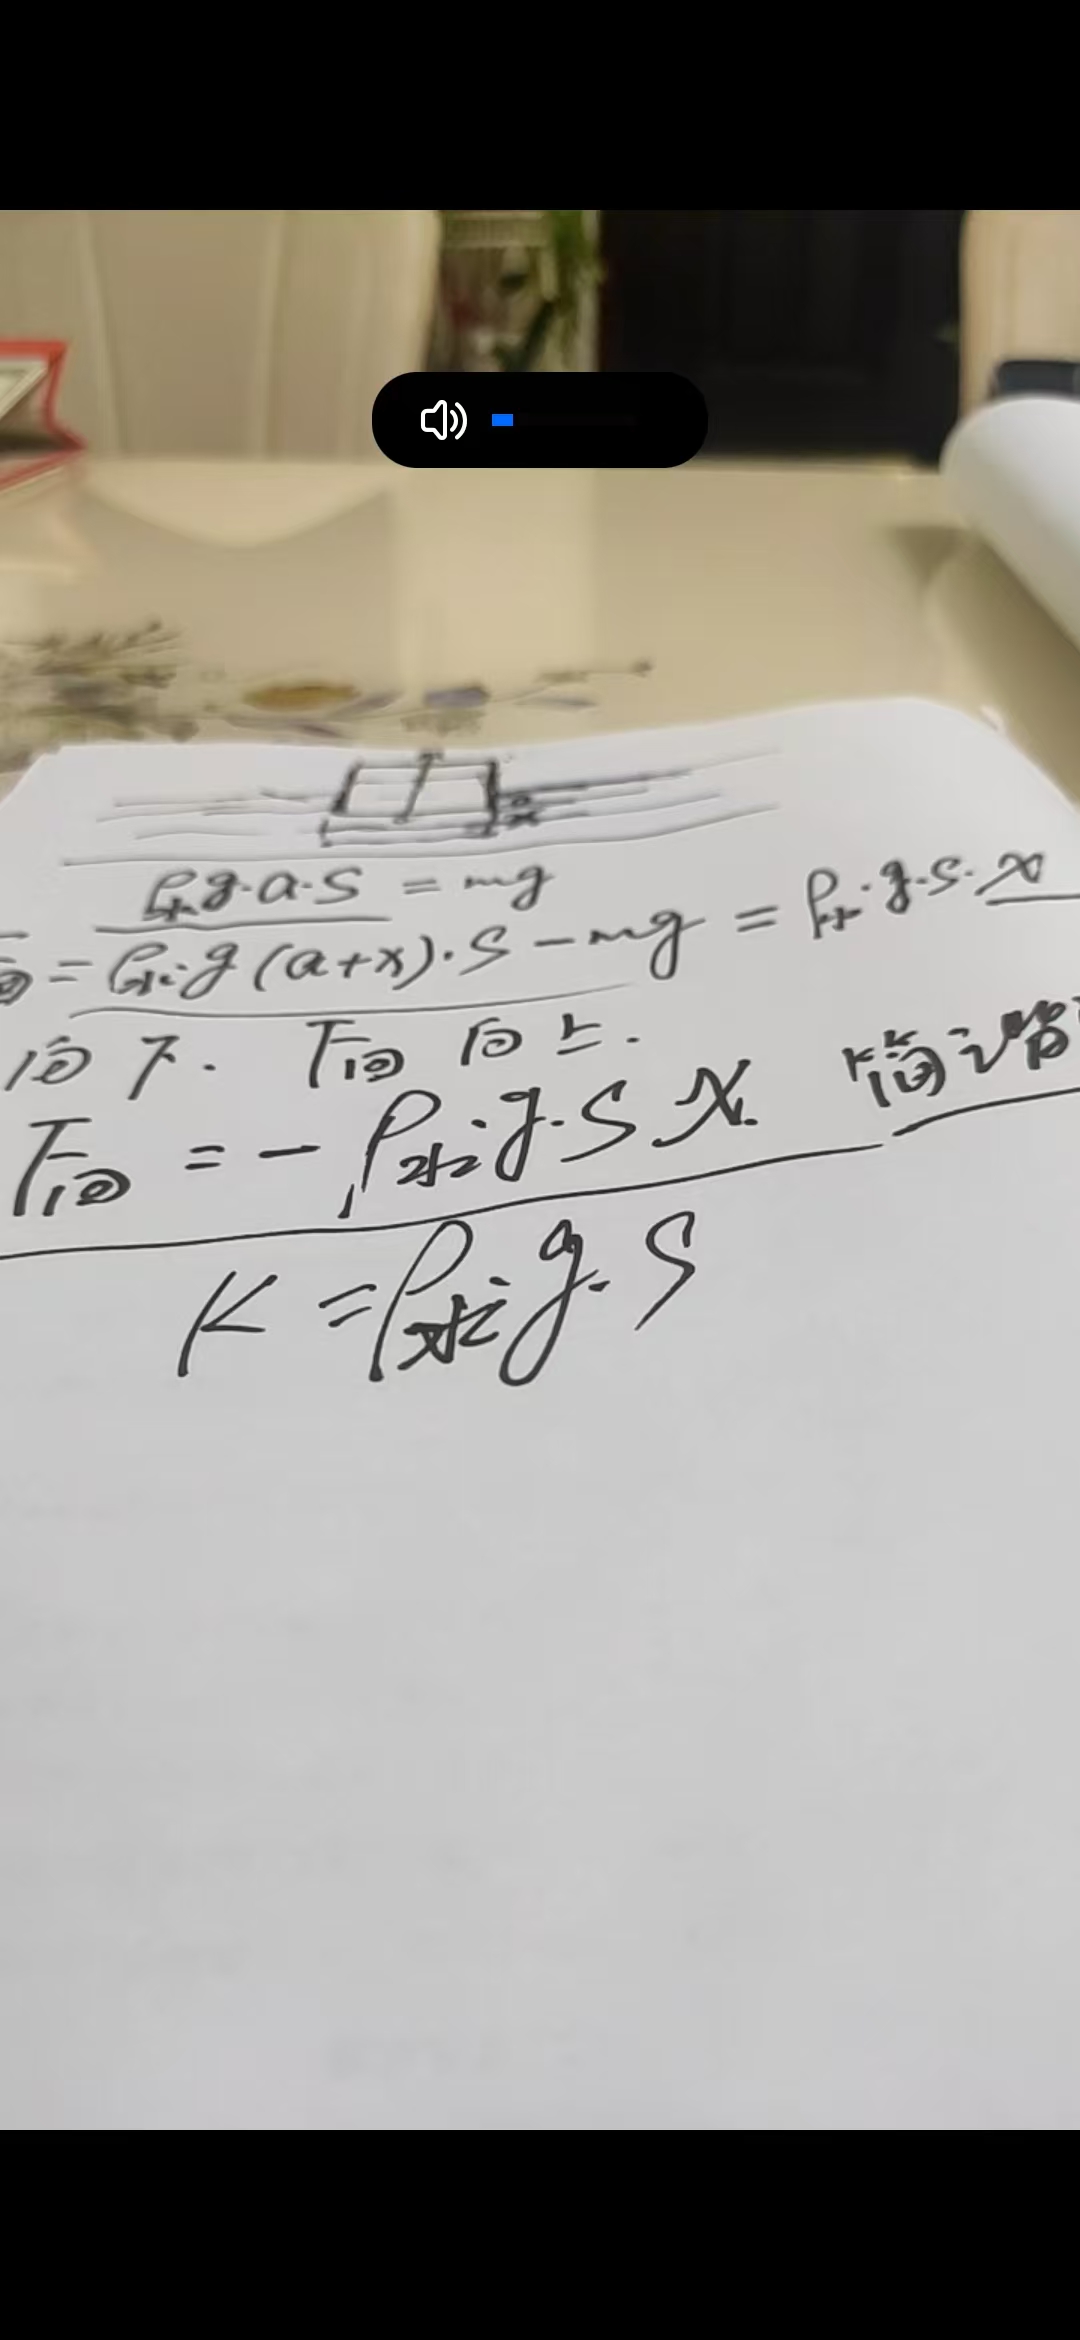 x
ρ水g·a·S = mg
F回 = ρ水g(a+x)·S - mg = ρ水·g·S·x
向下. F回 向上.
F回 = -ρ水g·S x. 简谐
K = ρ水g·S